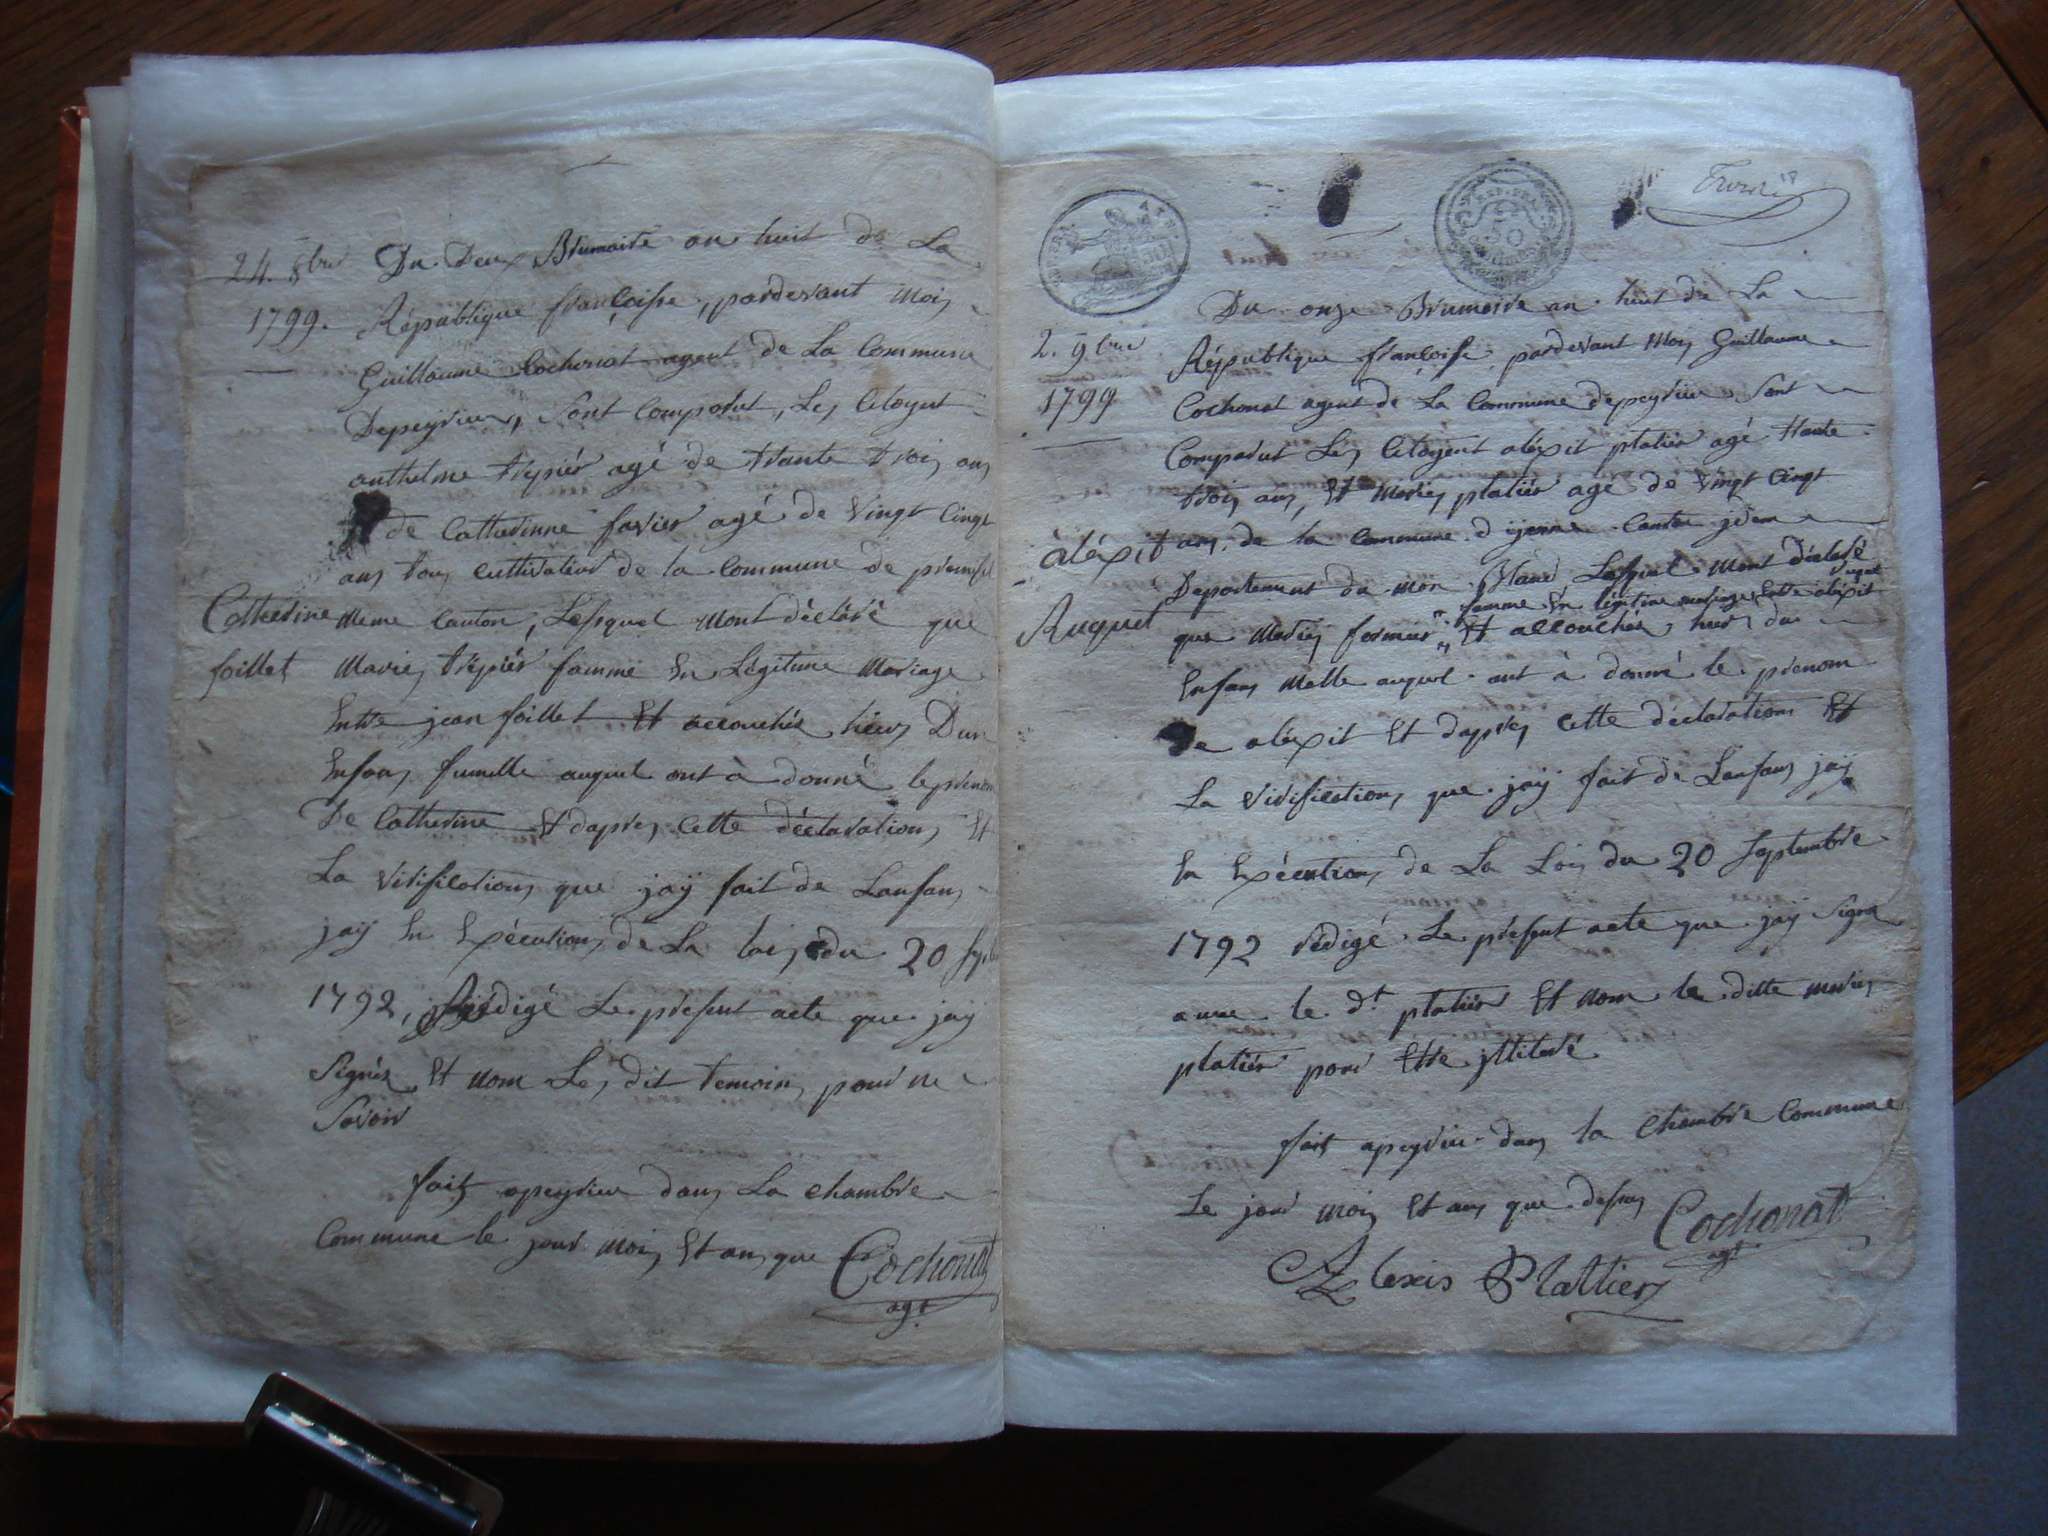 24. 8bre
1799.
Du Deux Brumaire an huit de La
République françoisse, pardevant Moi,
Guillaume Cochonat agent de La Commune
Depeyrieu, Sont Comparut, Les Citoyent
anthelme trepiér agé de trante trois ans
de Catherinne favier agé de Vingt Cinqt
ans tous cultivateur de la Commune de
Catherine
foillet
meme Canton, Lesquel Mont déclaré que
Marie, trépiér famme En Légitime Mariage
Entre jean foillet Et accouchéz hiers Dun
Enfan, fumelle auquel ont à donné le prenom
De Catherine Et dapres, cette déclaration, Et
La Vérification, que jaÿ fait de Lanfan,
jaÿ En Exécution, de La loi, du 20
1792, rédigé Le present acte que jaÿ
Signéz Et nom Les dit temoins, pour ne
Savoir
fait apeyrieu dans La Chambre
Commune le jour Moi, Et an, que
Cochonat
agt
2. 9bre
1799
Du onze Brumaire an huit de La
République françoise, pardevant Moy Guillaume
Cochonat agent de La Commune depeyrieu Sont
Comparut Les Citoyent aléxit platiér agé trante
trois ans, Et Marie, platiér agé de Vingt Cinqt
aléxit
Ruquet
ans de la commune d ijenne Canton jdem
Departement du Mon Blanc Lesquel Mont déclaré
famme En légitime mariage Entre aléxit
que Marie, Et accouchéz hier, dun
Enfan, Malle auquel ont à donné le prenom
De aléxit Et dapres, cette déclaration Et
La Vérification, que jaÿ fait de Lanfan, jaÿ
En Exécution, de La Loi, du 20 Septembre
1792 rédigé Le present acte que jaÿ Signé
avec le dt platiér Et nom la ditte marie,
platiér pour Etre jlliteré
fait apeyrieu dans la Chambre Commune
Le jour Moi, Et an, que desus
Cochonat
agt
Alexis Plattier